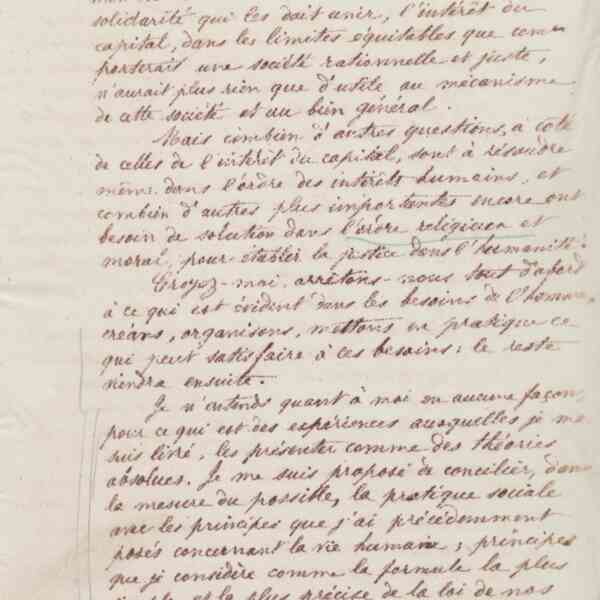 solidarité qui les doit unir, l'intérêt du
capital, dans les limites équitables que com
porterait une société rationnelle et juste,
n'aurait plus rien que d'utile au mécanisme
de cette société et au bien général.
Mais combien d'autres questions, à côté
de celles de l'intérêt du capital, sont à résoudre
même dans l'ordre des intérêts humains, et
combien d'autres plus importantes encore ont
besoin de solution dans l'ordre religieux et
moral, pour établir la justice dans l'humanité.
Croyez-moi, arrêtons-nous tout d'abord
à ce qui est évident dans les besoins de l'homme,
créons, organisons, mettons en pratique ce
qui peut satisfaire à ces besoins; le reste
viendra ensuite.
Je n'entends quant à moi en aucune façon,
pour ce qui est des expériences auxquelles je me
suis livré, les présenter comme des théories
absolues. Je me suis proposé de concilier, dans
la mesure du possible, la pratique sociale
avec les principes que j'ai précédemment
posés concernant la vie humaine; principes
que je considère comme la formule la plus
et la plus précise de la loi de nos